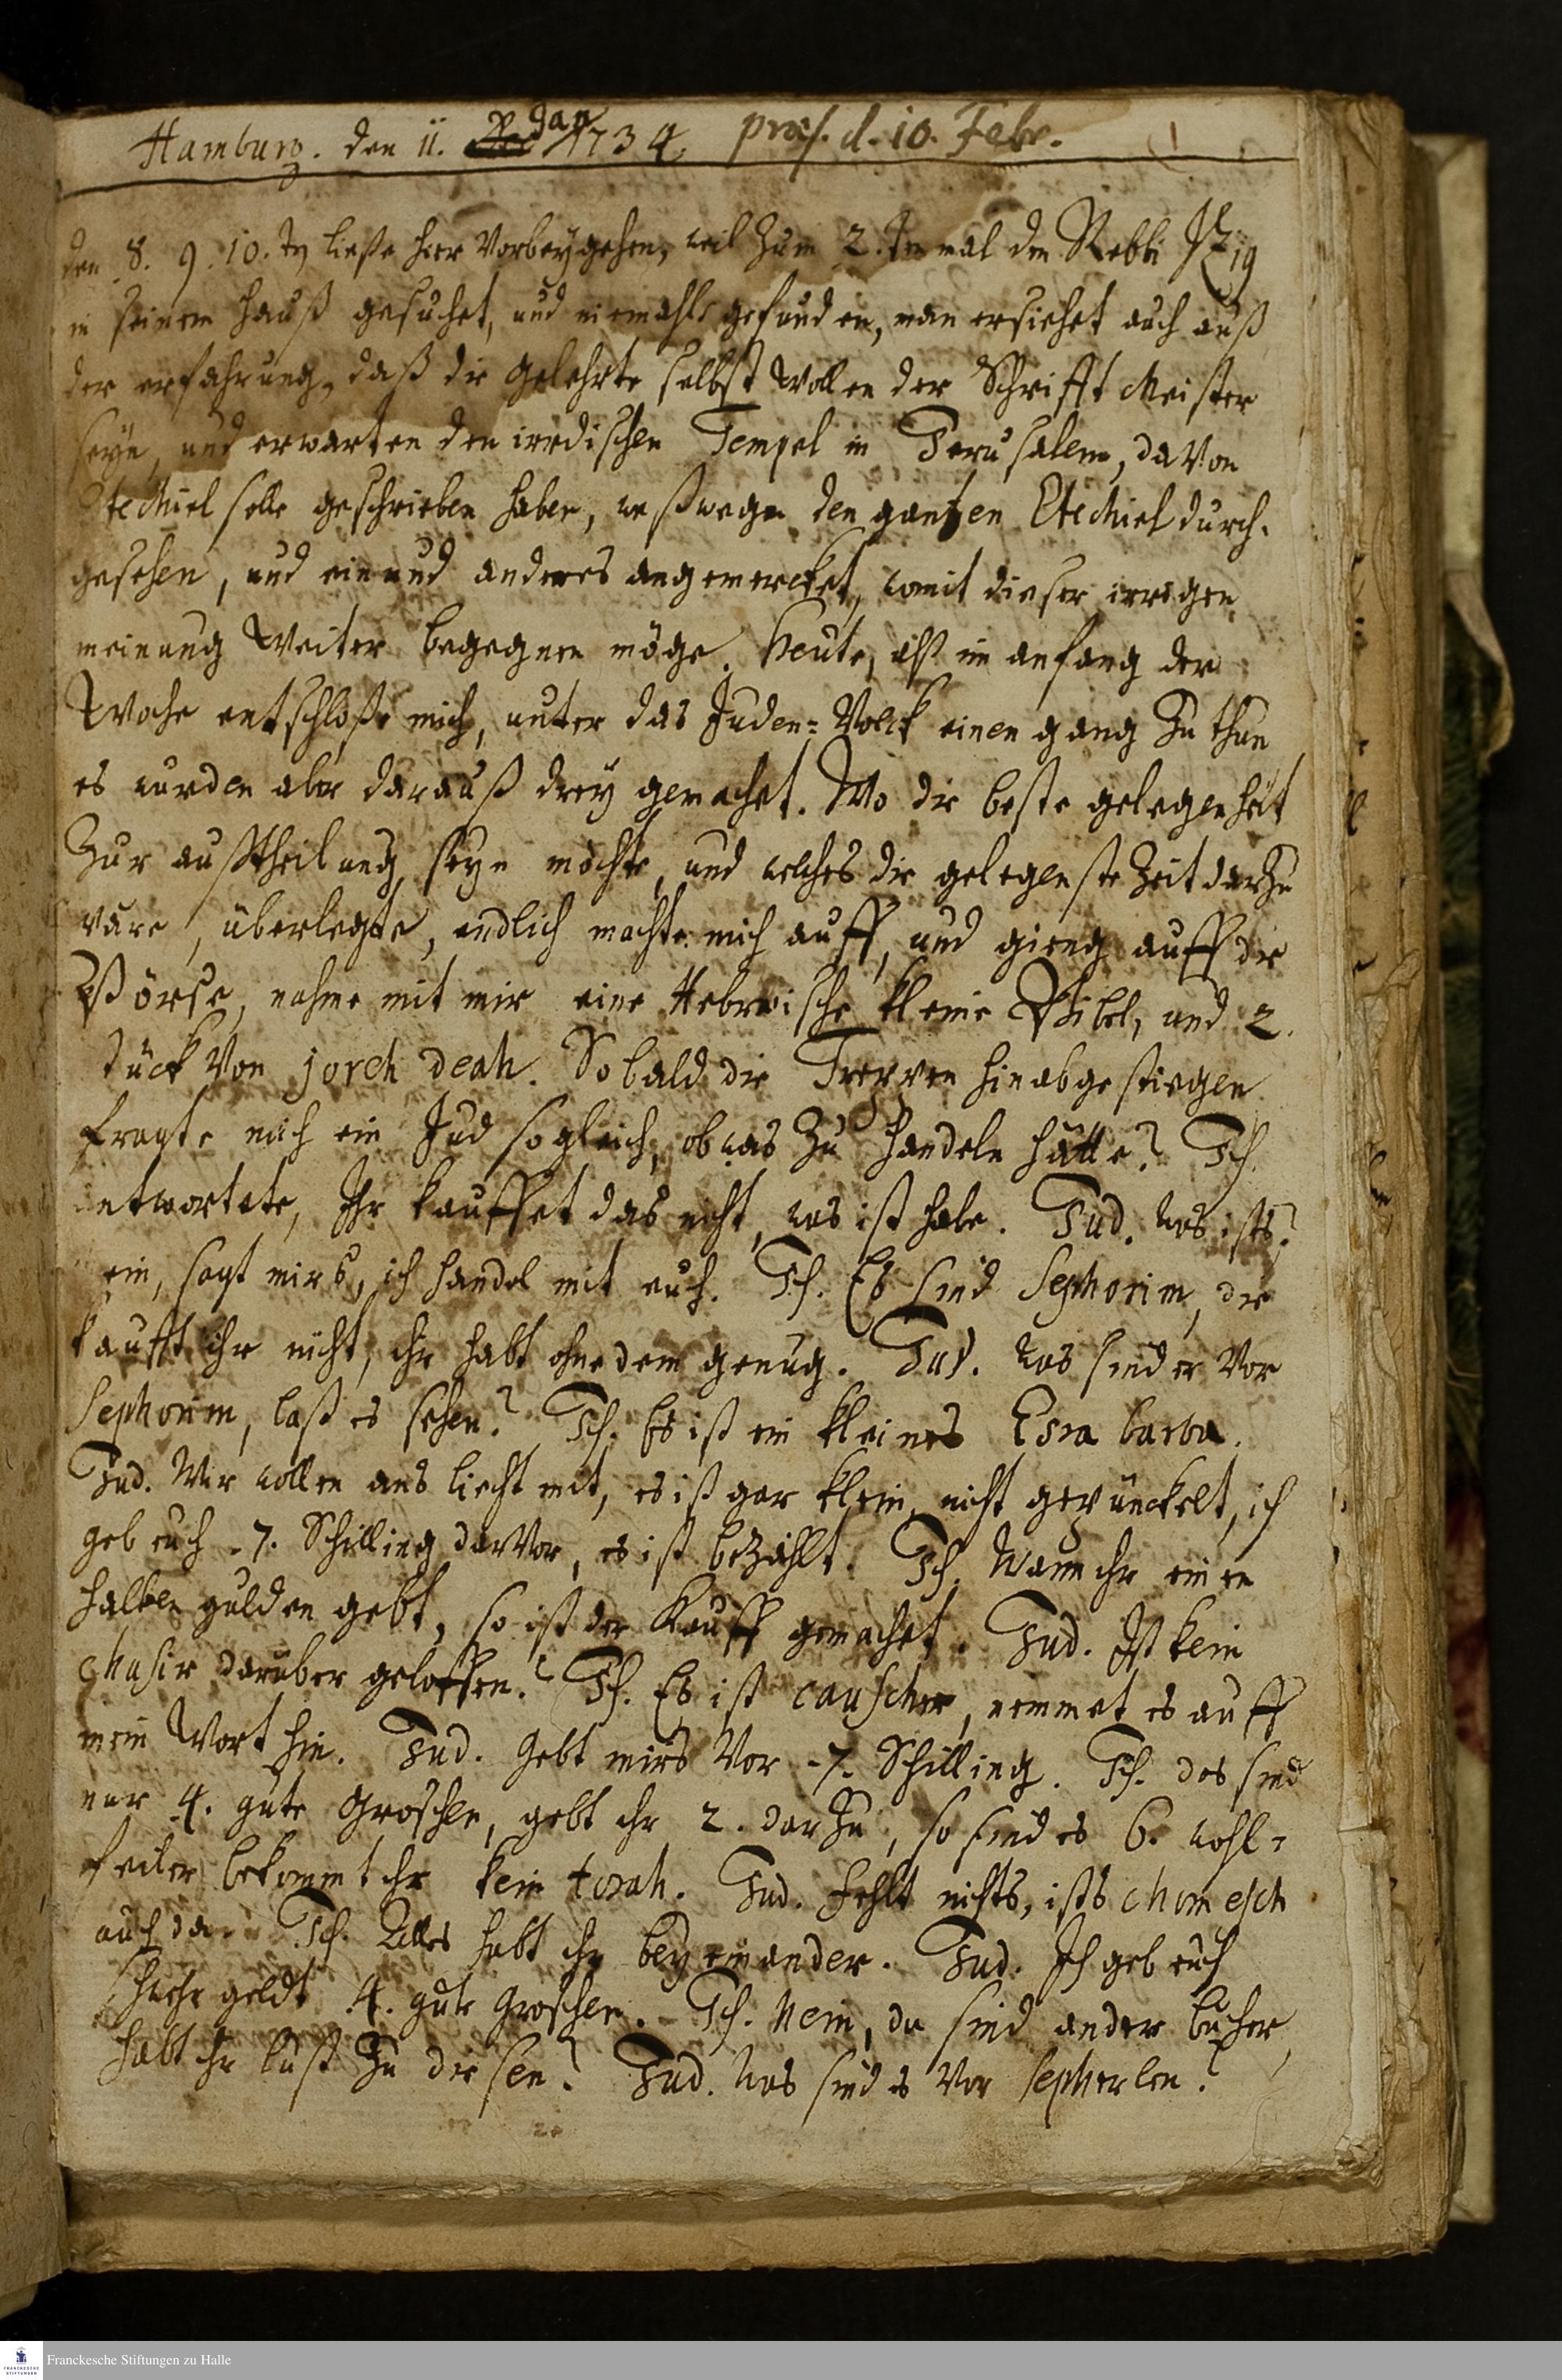 Hamburg. den 11. Jan 1734. præs. d. 10. Febr. 1
den 8. 9. 10. ließe hier Vorbeygehen, weil zum 2. mal den Rebbi Itzig
in seinem Hauß gesuchet, und niemahls gefunden, man ersiehet auch auß
der erfahrung, daß die gelehrte selbst wollen der Schrifft Meister
seyn, und erwarten den irrdischen Tempel in Jerusalem, davon
Etechiel solle geschrieben haben, weßwegen den gantzen Etechiel durch-
gesehen, und ein und anderes angemercket, womit dieser irrigen
meinung Weiter begegnen möge. Heute, alß im anfang der
Woche entschloße mich, unter das Juden-Volck einen gang zu thun
es wurden aber darauß drey gemachet. Wo die beste gelegenheit
zur außtheilung seyn möchte, und welches die gelegenste Zeit darzu
wäre, überlegte, endlich machte mich auff, und gieng auff die
Börse, nahme mit mir eine Hebreische kleine Bibel, und 2.
stück Von joreh deah. So bald die Treppen hinabgestiegen
fragte mich ein Jud sogleich, ob was zu handeln hätte? Ich.
antwortete, Ihr kauffet das nicht, was ich habe. Jud. was ists?
ein, sagt mirs, ich handel mit euch. Ich. Es sind Sephorim, die
kaufft ihr nicht, ihr habt ohne dem genug. Jud. was sind er Vor
Sephorim, laß es sehen? Ich. Es ist ein kleines Esra barba.
Jud. Wir wollen ans liecht mit, es ist gar klein, nicht gepünckelt, ich
geb euch 7. Schilling darvor, es ist bezahlt. Ich. Wann ihr einen
halben gulden gebt, so ist der Kauff gemachet. Jud. Ist kein
chasir darüber geloffen? Ich. Es ist causcher, nemmet es auff
mein Wort hin. Jud. Gebt mirs Vor 7. Schilling. Ich. das sind
nur 4. gute Groschen, gebt ihr 2. darzu, so sind es 6. wohl-
feiler bekommt ihr kein torah. Jud. Fehlt nichts, ists chomesch
auch da. Ich. Alles habt ihr beyeinander. Jud. Ich geb euch
geldt 4. gute Groschen. Ich. Nein, da sind ander bücher,
habt ihr lust zu diesen? Jud. Was sind es Vor sepherlen?
Franckesche Stiftungen zu Halle